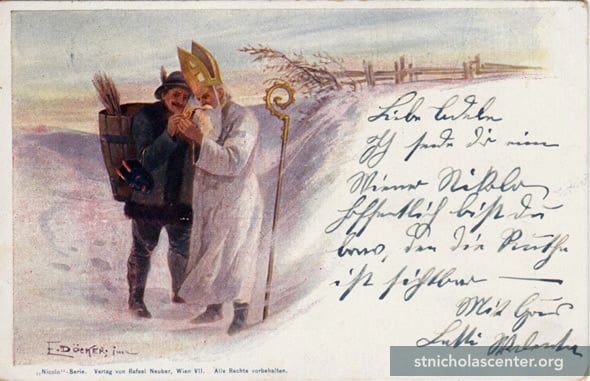 Liebe Adele
Ich sende dir einen
Wiener Nikolo
hoffentlich bist du
brav, den die Ruthe
ist sichtbar —
Mit Gruss
E. DÖCKER, inv
„Nicolo"-Serie. Verlag von Rafael Neuber, Wien VII. Alle Rechte vorbehalten.
stnicholascenter.org